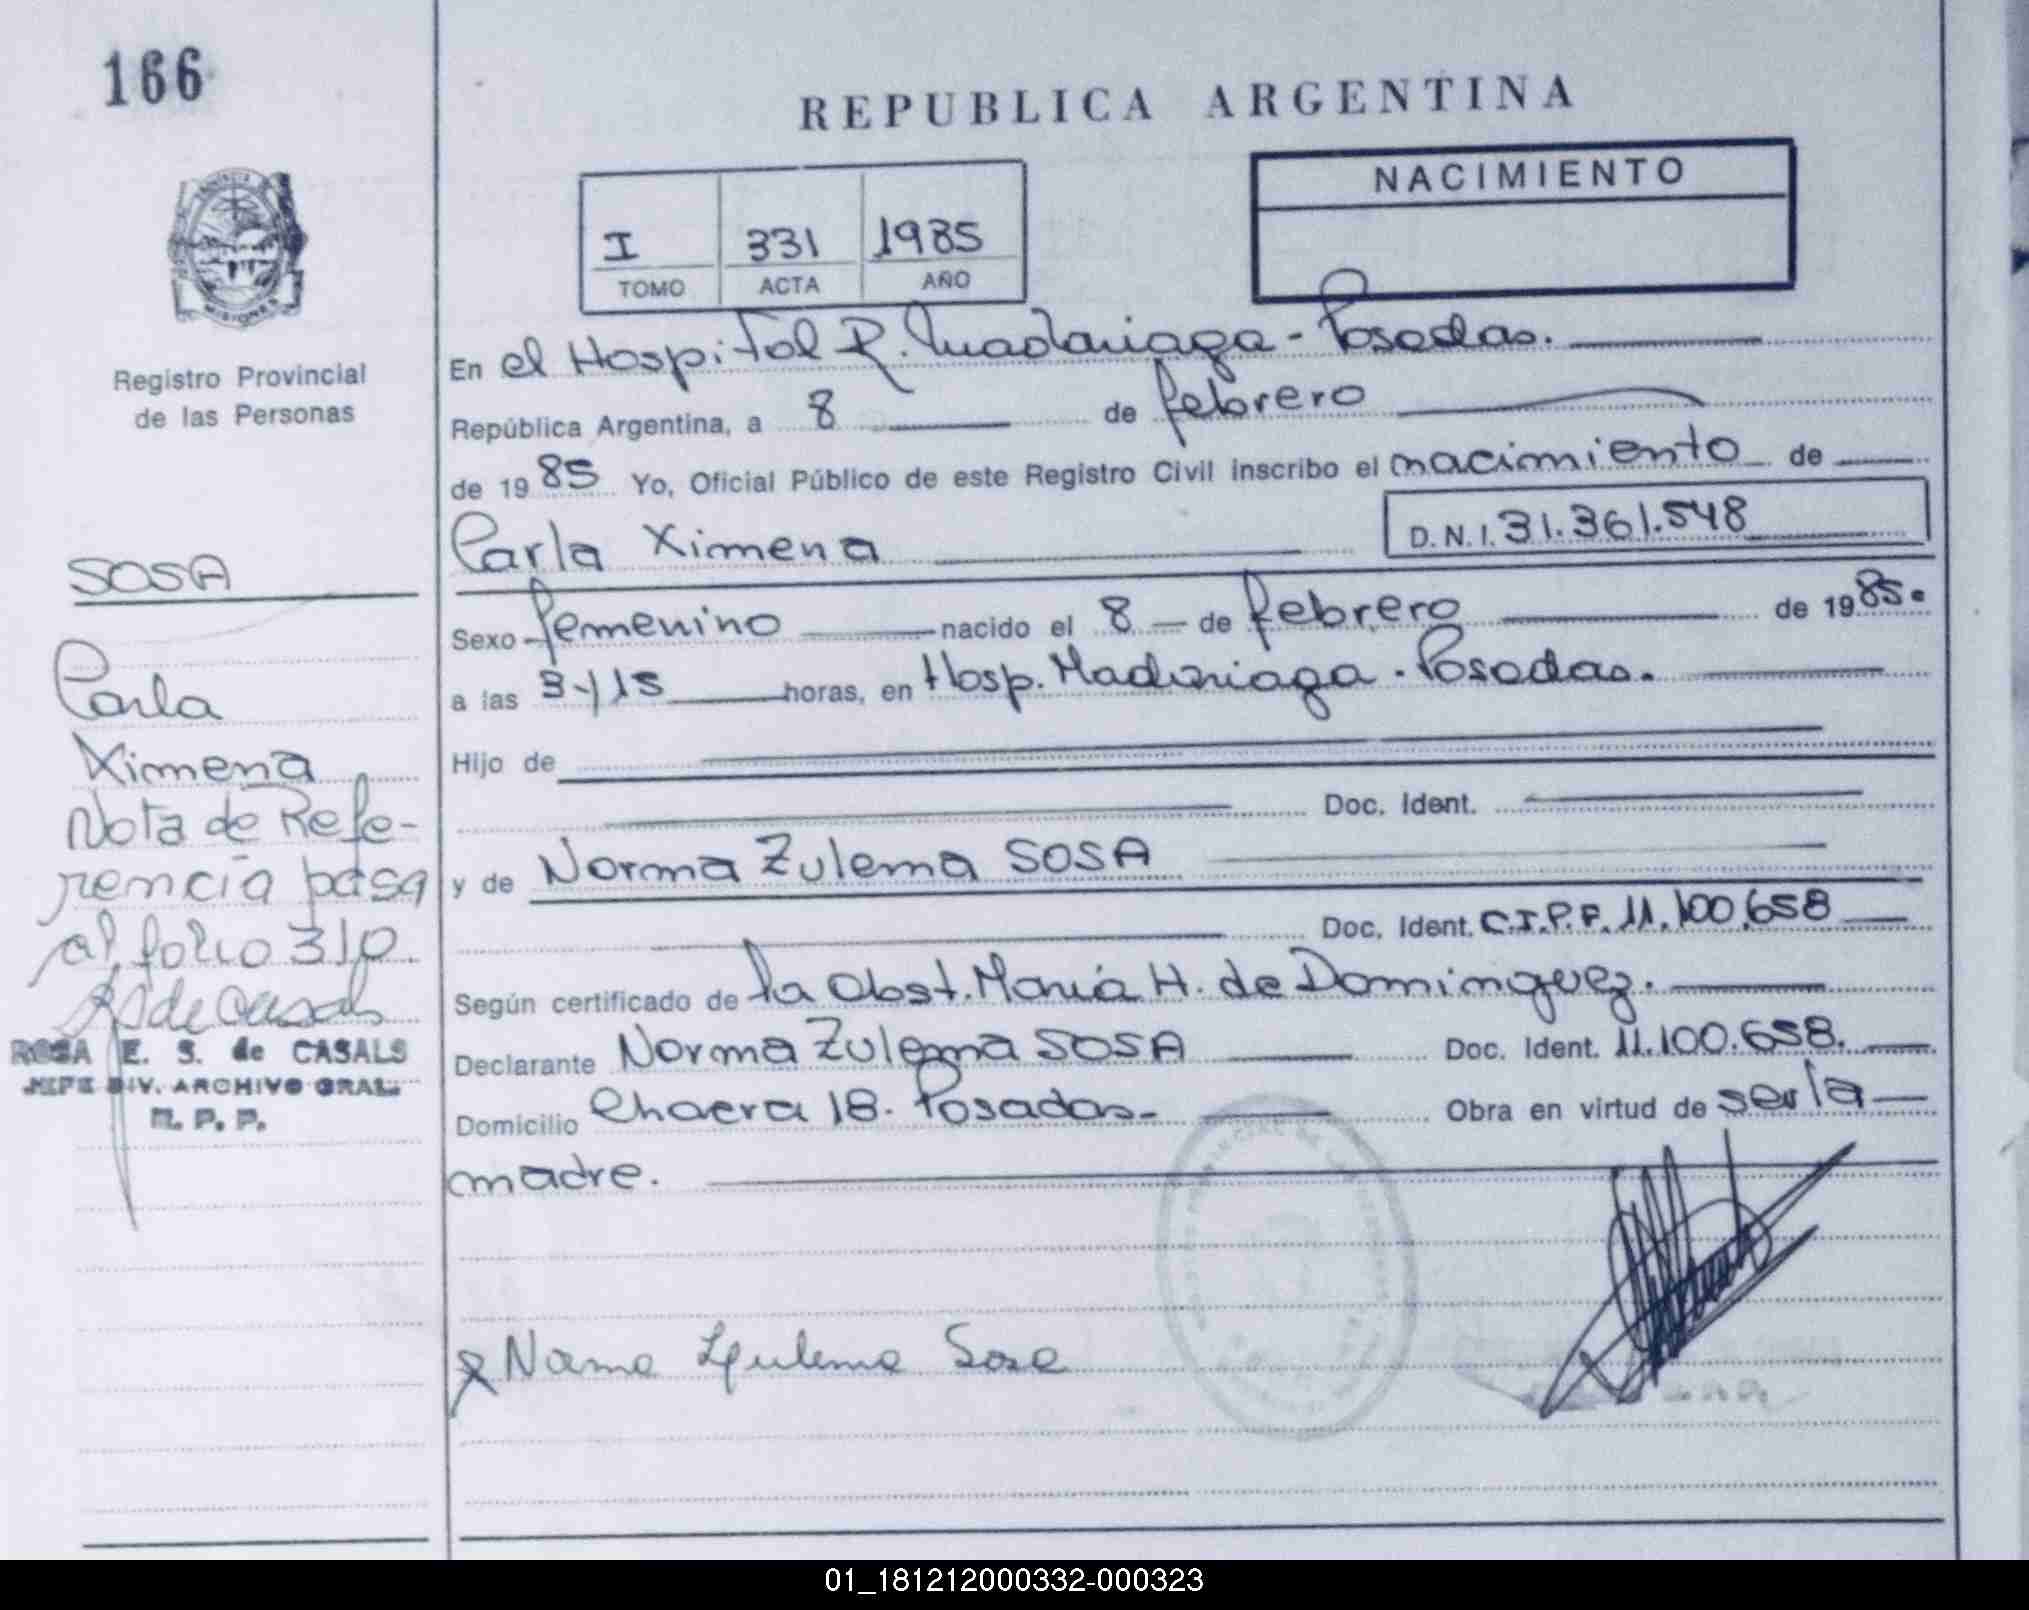 166
REPUBLICA ARGENTINA
NACIMIENTO
I 331 1985
TOMO ACTA AÑO
MISIONES
Registro Provincial
de las Personas
En el Hospital R. Madariaga - Posadas.
República Argentina, a 8 de febrero
de 1985 Yo, Oficial Público de este Registro Civil inscribo el nacimiento de
Carla Ximena D.N.I. 31.361.548
Sexo femenino nacido el 8 de febrero de 1985.
a las 3-15 horas, en Hosp. Madariaga - Posadas.
Hijo de
Doc. Ident.
y de Norma Zulema SOSA
Doc. Ident. C.I.P.F. 11.100.658
Según certificado de la Obst. María H. de Dominguez.
Declarante Norma Zulema SOSA Doc. Ident. 11.100.658.
Domicilio Chacra 18. Posadas- Obra en virtud de ser la
madre.
Norma Zulema Sosa
SOSA
Carla
Ximena
Nota de Refe-
rencia pasa
al folio 310
ROSA E. S. de CASALS
JEFE DIV. ARCHIVO GRAL.
R. P. P.
01_181212000332-000323